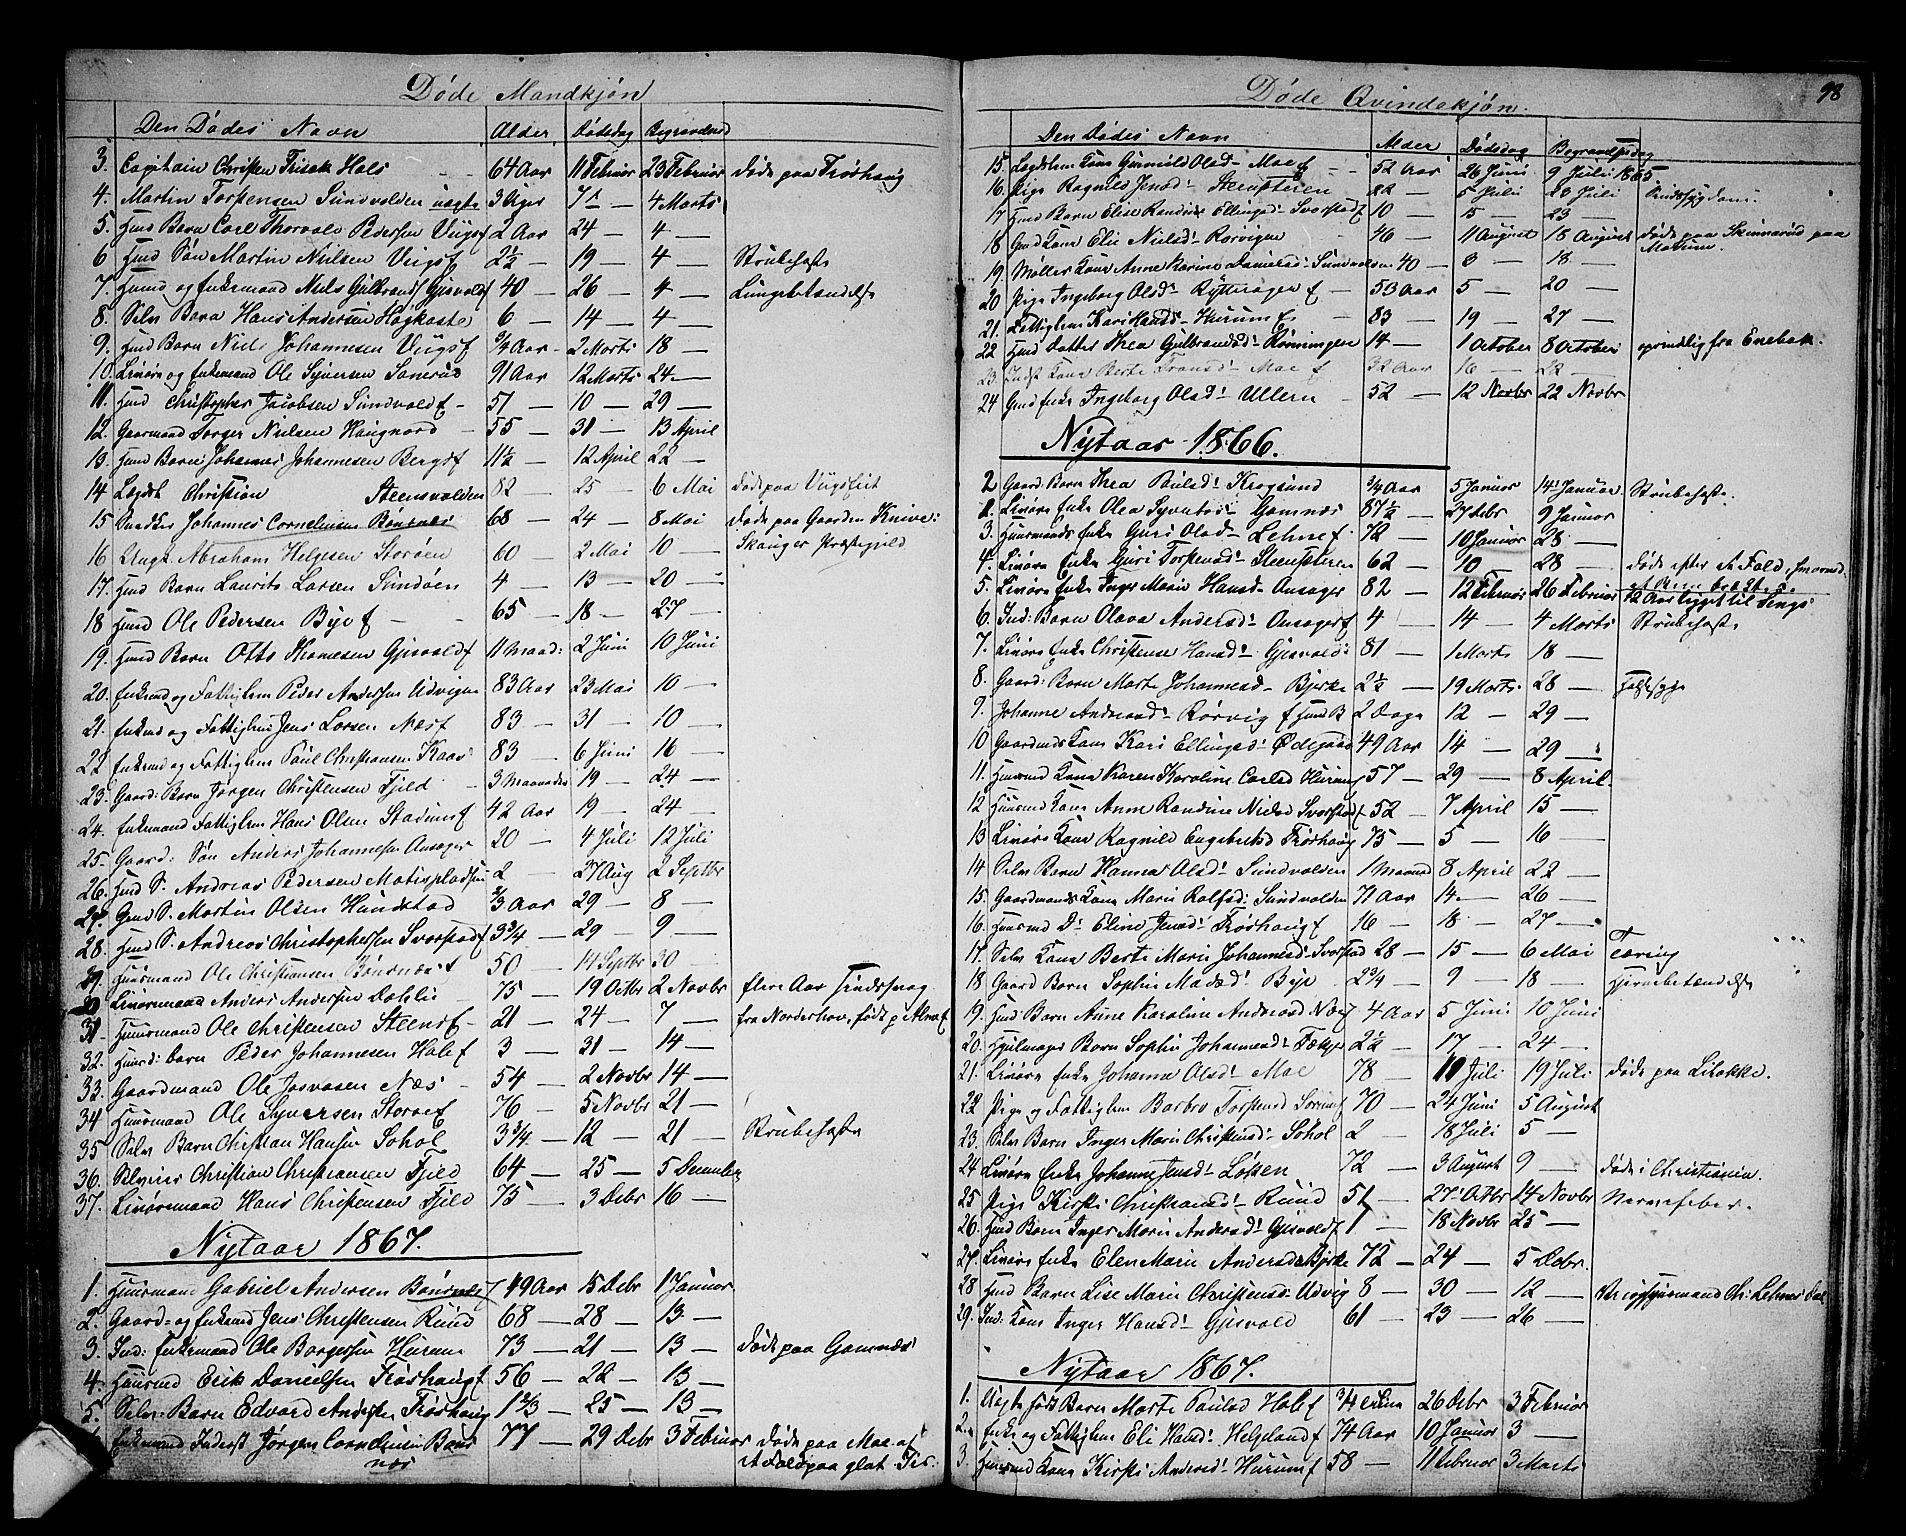 Døde Mandkjøn
Den Dødes Navn Alder Dødsdag Begravelsesd
3. Capitain Christen Frisak Hals 64 Aar 11 Februar 23 Februar Døde paa Frøshaug
4. Martin Torstensen Sundvolden uægte 3 Uger 4 Marts
5. Husd Barn Carl Thorvald Pedersen Viigsf 2 Aar 24 — 4 —
6 Husd Søn Martin Nielsen Viigsf 2½ — 19 — 4 — Strubehoste
7. Husmd og Enkemand Niels Gulbrands Gjesvoldf 40 — 26 — 4 — Lungebetændelse
8. Selv Barn Hans Andersen Høgkastet 6 — 14 — 4 —
9. Husd Barn Niel Johannesen Viigsf ¾ Aar — 2 Marts 18 —
10. Livøre og Enkemand Ole Syversen Sonerud 91 Aar 12 Marts 24 —
11. Husd Christopher Jacobsen Sundvoldf — 51 — 10 — 29 —
12. Gaarmand Torger Nielsen Haugnord 55 — 31 — 13 April
13. Husd Barn Johannes Johannesen Bergsf 11½ — 12 April 22 —
14 Legdsl Christian Steensvolden 82 — 25 — 6 Mai Døde paa Viigseiet
15. Snedker Johannes Corneliusen Bønsnæs 68 — 24 — 8 Mai Døde paa Gaarden Knive:
16 Ungk. Abraham Helgesen Storøen 60 — 2 Mai 10 — Skauger Præstegield
17. Husd Barn Laurits Larsen Sundøen 4 — 13 — 20 —
18 Husd Ole Pedersen Byef — 65 — 18 — 27 —
19. Husd Barn Otto Thomesen Gjesvoldf 11 Maad: 2 Juni 10 Juni
20. Enkemd og Fattiglem Peder Andersen Udvigen 83 Aar 23 Mai 10 —
21. Enkemd og Fattiglem Jens Larsen Næsf 83 — 31 — 10 —
22 Enkemd og Fattiglem Paul Christiansen Kaas 83 — 6 Juni 16 —
23. Gaard: Barn Jørgen Christensen Fjeld — 3 Maaneder 19 — 24 —
24. Enkemand Fattiglem Hans Olsen Stadumsf 42 Aar 19 — 24 —
25. Gaard: Søn Anders Johannesen Onsager 20 — 4 Juli 12 Juli
26. Husd S. Andreas Pedersen Matispladsen 2 — 27 Aug 2 Septbr
27. S. Martin Olsen Hundstad ⅔ Aar 29 — 8 —
28. Husd S. Andreas Christophersen Svorstadf 3¾ — 29 — 9 —
29. Huusmand Ole Christiansen Bønsnæsf 50 — 14 Septbr 30 —
30 Livøremand Anders Andersen Dahlie 75 — 19 Octbr 2 Novbr flere Aar Sindssvag
31 Huusmand Ole Christensen Steensf — 21 — 24 — 7 — fra Norderhov, født p Almef
32. Husmd: barn Peder Johannesen Holef 3 — 31 — 14 —
33. Gaardmand Ole Josvasen Næs 54 — 2 Novbr 14 —
34 Huusmand Ole Syversen Storøef 76 — 5 Novbr 21 —
35 Selv Barn Christian Hansen Sohol 3¾ — 12 — 21 — Strubehoste
36. Selveier Christian Christiansen Fjeld 64 — 25 — 5 December
37. Livøremand Hans Christensen Fjeld 75 — 3 Debr 16 —
Nytaar 1867.
1. Huusmand Gabriel Andersen Bønsnæsf 49 Aar 15 Debr 1 Januar
2. Gaard= og Enkemd Jens Christensen Rund 68 — 28 — 13 —
3. Ind: Enkemand Ole Borgersen Hurum 73 — 21 — 13 — Døde paa Gomnæs
4. Huusmd Erik Danielsen Frøshaugf 56 — 22 — 13 —
5. Selv: Barn Edvard Andersen Frøshaug 1⅔ — 25 — 13 —
Enkemand Inderst Jørgen Corneliusen Bøns 77 — 29 Debr 3 Februar Døde paa Moe af
næs et Fald paa glat Iis.
Døde Qvindekjøn. 98
Den Dødes Navn Alder Dødsdag Begravelsesdag
15. Legdslem Kone Gunnild Olsd — Moef — 52 Aar 26 Juni 9 Juli 1865
16. Pige Ragnild Jensd: Steensteren 22 — 5 Juli 20 Juli Sindssygdom.
17 Husd Barn Elise Randine Ellingsd: Svorstadf 10 — 15 — 23 —
18 Husd Kone Elie Nielsd: Rørvigen 46 — 11 August 18 August døde paa Skinnarud paa
Modum.
19 Møller Kone Anne Karine Danielsd: Sundvolden 40 — 8 — 18 —
20 Pige Ingeborg Olsd: Rytterager f — 53 Aar 5 — 20 —
21. Fattiglem Kari Hansd: Hurumf 83 — 19 — 27 —
22 Husd Datter Thea Gulbrandsd: Rønningen 14 — 1 October 8 October oprindelig fra Enebak.
23. Indst Kone Berte Fransd: Moe f 32 Aar 16 — 22 —
24 Enke Ingeborg Olsd: Ullern — 52 — 12 Novbr 22 Novbr
Nytaar 1866.
2 Gaard: Barn Thea Paulsd: Krogsund ¾ Aar 5 Januar 14 Januar Strubehoste.
1. Livøre Enke Olea Syvertsd: Gomnæs 87½ — 27 debr 9 Januar
3. Huusmands Enke Guri Olsd — Lehnef 72 — 10 Januar 28 —
4. Livøre Enke Guri Torstensd: Steensteren 62 — 10 — 28 — Døde efter et Fald,
5. Livøre Enke Inger Marie Hansd — Onsager 82 — 12 Februar 26 Februar 12 Aar ligget til Sengs
6. Ind: Barn Olava Andersd: Onsagerf 4 — 14 — 4 Marts Strubehoste
7. Livøre Enke Christense Hansd: Gjesvold: 81 — 1 Marts 18 —
8. Gaard: Barn Marte Johannesd — Bjerke 2½ — 19 Marts 28 —
9. Johanne Andreasd: — Rørvig f Husd B 2 Dage 12 — 29 —
10 Gaardmds Kone Kari Ellingsd: Ødegaard 49 Aar 14 — 29 —
11. Huusmd Kone Karen Karoline Carlsd Hurum 57 — 29 — 8 April.
12 Huusmd Kone Anne Randine Nielsd Svorstadf 52 — 7 April 15 —
13 Livøre Kone Ragnild Engebretsd Frøshaug 75 — 5 — 16 —
14 Selv Barn Hanna Olsd: Sundvolden 1 Maaned 8 April 22 —
15. Gaardmands Kone Marie Rolfsd: Sundvolden 71 Aar 14 — 26 —
16. Huusmd D: Eline Jensd: Frøshaugf 16 — 18 — 27 —
17. Selv Kone Berte Marie Johannesd: Svorstad 28 — 15 — 6 Mai Tæring
18 Gaard Barn Sophie Madsd: Bye 2¾ — 9 — 18 — Hjernebetændelse
19. Husd Barn Anne Karoline Andersd Næsf 4 Aar 5 Juni 10 Juni
20. Hjulmager Barn Sophie Johannesd: Fækjer 2½ — 17 — 24 —
21. Livøre Enke Johanna Olsd: Moe 78 — 10 Juli 19 Juli Døde paa Lilokke.
22 Pige og Fattiglem Barbro Torstensd Sonerudf 70 — 24 Juni 5 August
23. Selv Barn Inger Marie Christensd: Sohol 2 — 18 Juli 5 —
24 Livøre Enke Johanne Jensd: Løken 72 — 3 August 9 — Døde i Christiania.
25 Pige Kirsti Christiansd: Rund 51 — 27 Octbr 14 Novbr Nervefeber.
26. Husd Barn Inger Marie Andersd: Gjesvoldf 1 — 18 Novbr 25 —
27. Livøre Enke Elen Marie Andersd: Bjerke 72 — 24 — 5 Debr.
28 Husd Barn Lise Marie Christensd: Udvig 8 — 30 — 12 —
29. Ind: Kone Inger Hansd: Gjesvold 61 — 23 — 26 —
Nytaar 1867.
1. Uægte født Barn Marte Paulsd Holef ¾ 26 Debr 3 Februar
2. Enke og Fattiglem Eli Hansd: Helgelandf 74 Aar 10 Januar 3 —
3. Huusmd Kone Kirsti Andersd: Hurumf 58 — 11 Februar 3 Marts